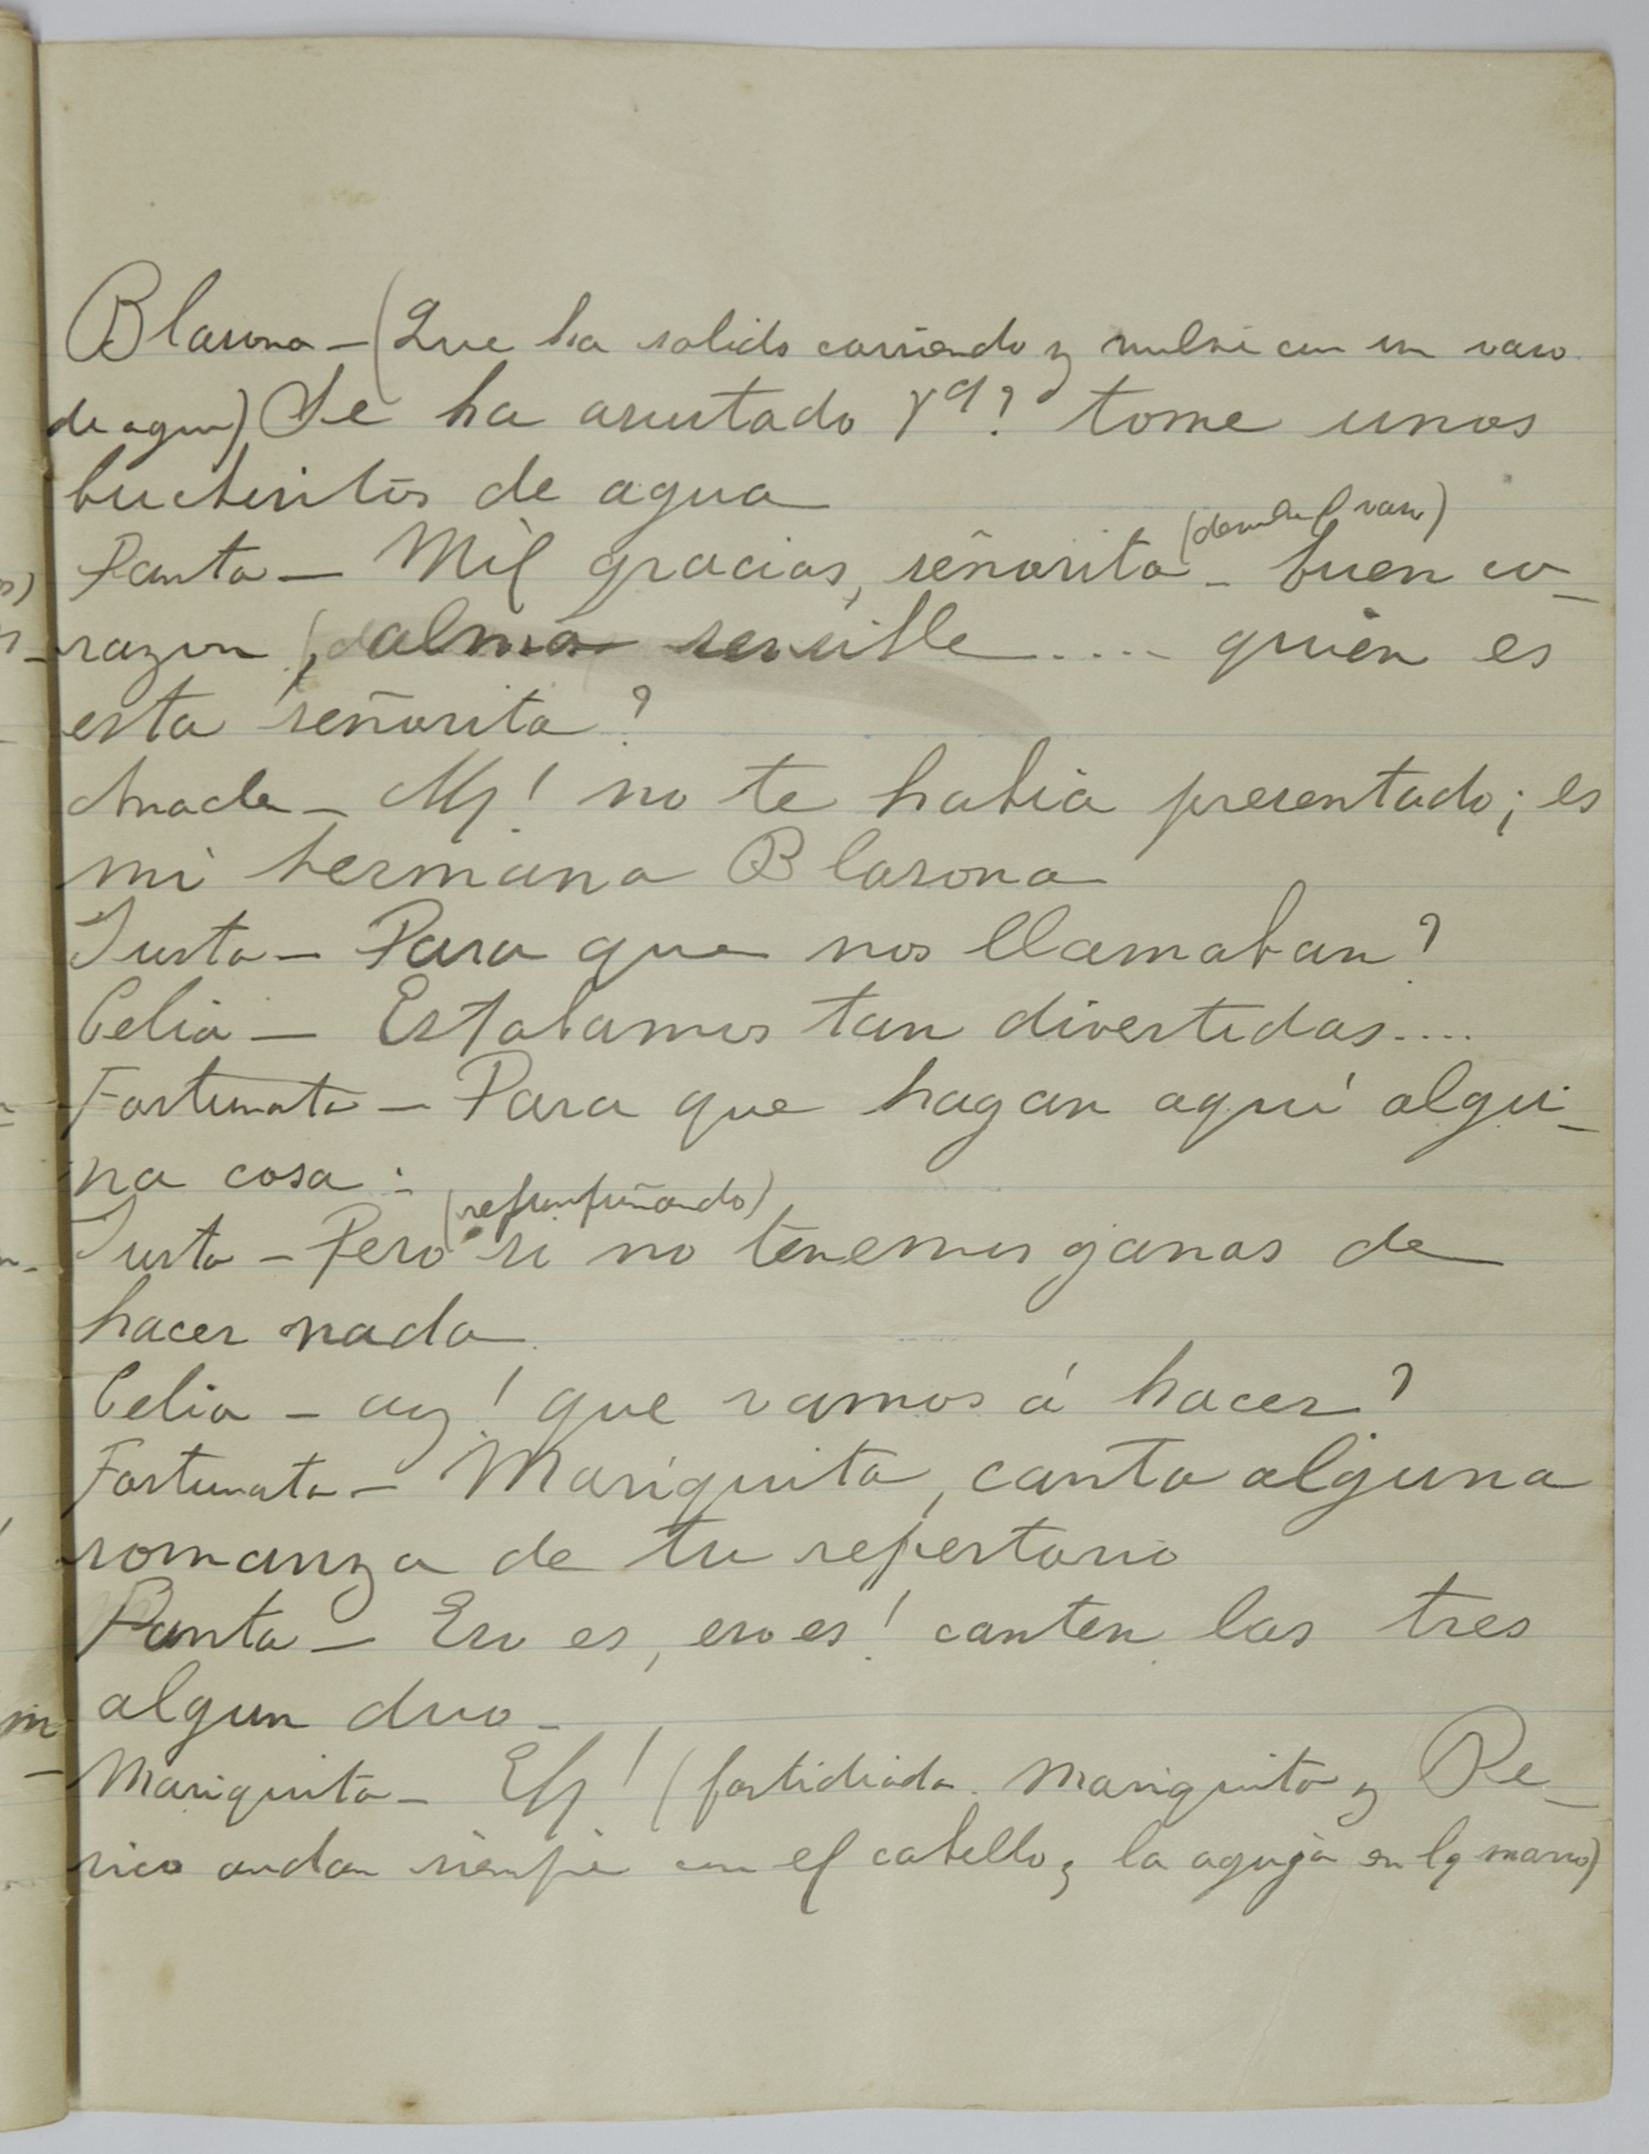 Blasona - (Que ha salido corriendo y vuelve con un vaso
de agua) Se ha asustado Vd? tome unos
buchintos de agua
(devuelve el vaso)
Panta - Mil gracias, señorita - buen co-
razon, alma sensible .... quien es
esta señorita?
Anacle - Ay! no te habia presentado; es
mi hermana Blasona
Justa - Para que nos llamaban?
Celia - Estabamos tan divertidas....
Fortunata - Para que hagan aquí algu-
na cosa.
(refunfuñando)
Justa - Pero si no tenemos ganas de
hacer nada
Celia - ay! que vamos á hacer?
Fortunata - Mariquita, canta alguna
romanza de tu repertorio
Panta - Eso es, eso es! canten las tres
algun duo -
Mariquita - Ey! (fastidiada. Mariquita y Pe-
rico andan siempre con el cabello y la aguja en la mano)